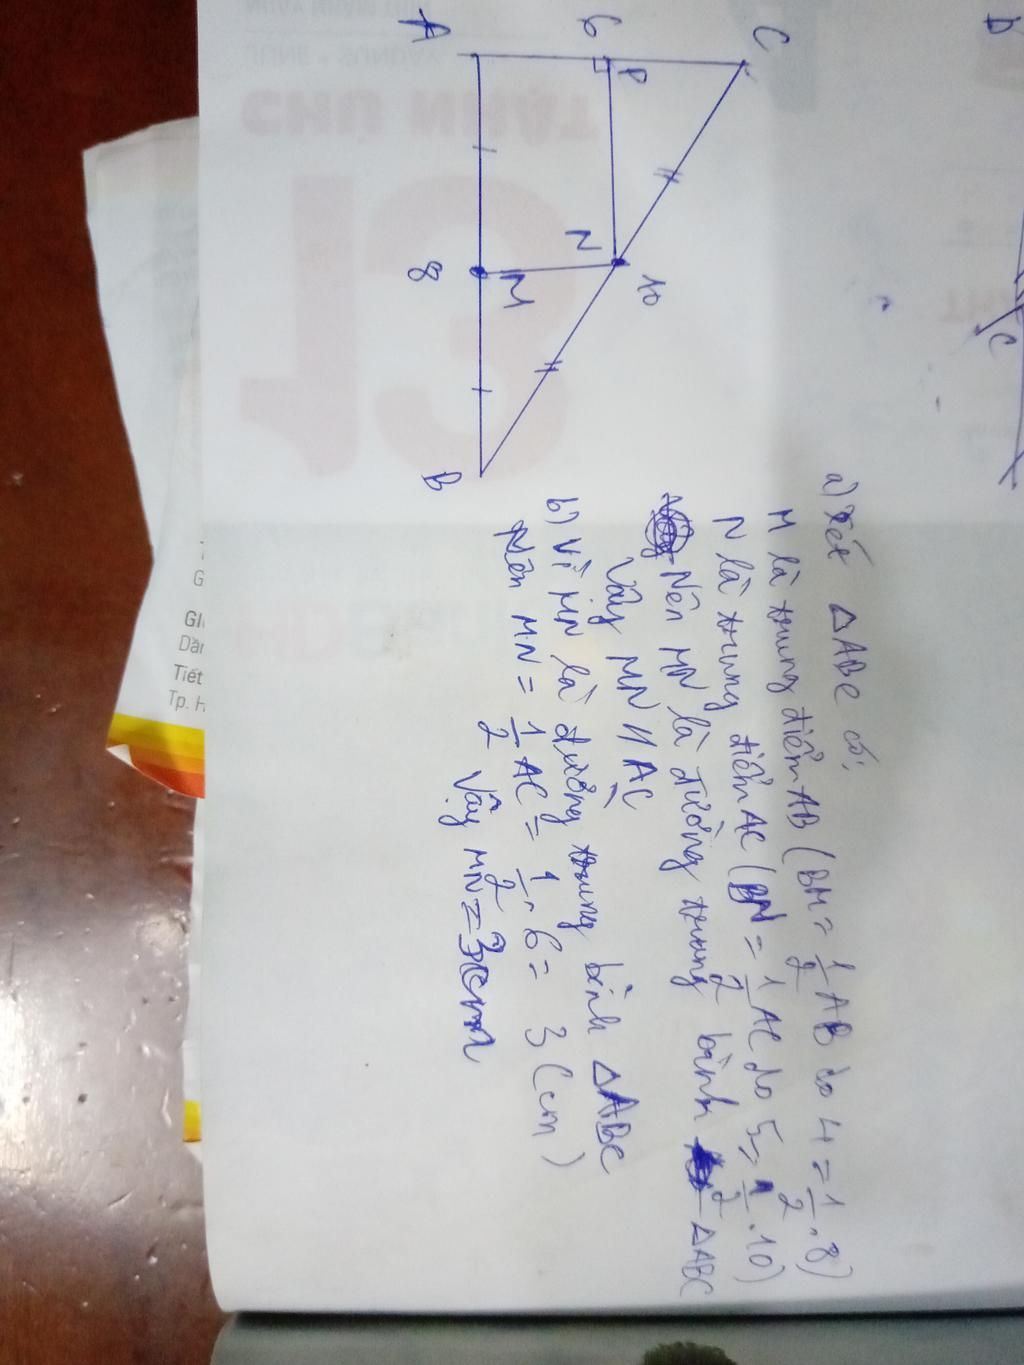 A
6
C
P
N
10
8
M
B
D
C
a) Xét △ABC có:
M là trung điểm AB (BM = 1/2 AB do 4 = 1/2 . 8)
N là trung điểm AC (BN = 1/2 AC do 5 = 1/2 . 10)
Nên MN là đường trung bình △ABC
Vậy MN // AC
b) Vì MN là đường trung bình △ABC
Nên MN = 1/2 AC = 1/2 . 6 = 3 (cm)
Vậy MN = 3cm
CHỦ NHẬT
13
G
GI
Dầ
Tiết
Tp. H